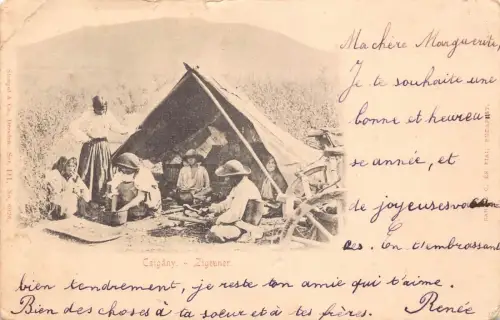 Ma chère Marguerite,
Je te souhaite une
bonne et heureu
se année, et
de joyeuses
ces. En t'embrassant
bien tendrement, je reste ton amie qui t'aime.
Bien des choses à ta soeur et à tes frères. Renée
Czigány. - Zigeuner